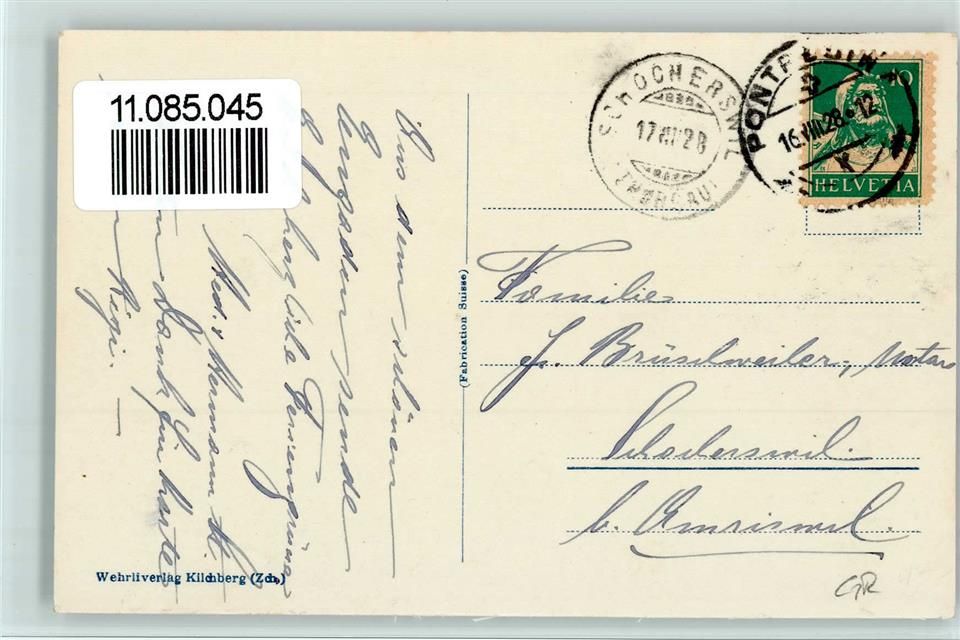 11.085.045
SCHOCHERSWIL
17.VIII.28
(THURGAU)
PONTRESINA
16.VIII.28.12
10
HELVETIA
Aus dem schönen
Engadin sende
herzliche Feriengrüsse
Hermann
Dank für Karte
Rigi. —
(Fabrication Suisse)
Familie
J. Brüschweiler, Notar
Schocherswil.
b. Amriswil.
Wehrliverlag Kilchberg (Zch.)
GR